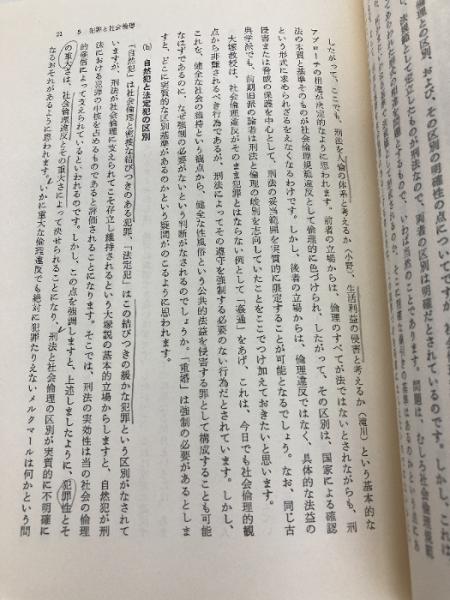 と倫理との区別、および、その区別の明確性の点についてですが、
したがって、ここでも、刑法を人倫の体系と考えるか（小野）、生活利益の侵害と考えるか（滝川）という基本的な
アプローチの相違が決定的なように思われます。前者の立場からは、倫理のすべてが法ではないとされながらも、刑
法の本質と基準そのものが社会倫理規範違反として倫理的に色づけられ、したがって、その区別は、国家による確認
という形式に求められざるをえなくなるわけです。しかし、後者の立場からは、倫理違反ではなく、具体的な法益の
侵害または脅威の保護を中心として、刑法の妥当範囲を実質的に限定することが可能となるでしょう。なお、同じ古
典学派でも、前期旧派の論者は刑法と倫理の峻別を志向していたことをここでつけ加えておきたいと思います。
大塚教授は、社会倫理違反がそのまま犯罪とはならない例として「姦通」をあげ、これは、今日でも社会倫理的観
点から非難されるべき行為であるが、刑法によってその遵守を強制する必要のない行為だとされています。しかし、
これを、健全な社会の維持という観点から、健全な性風俗という公共的法益を侵害する罪として構成することも可能
なはずであるのに、なぜ強制の必要がないという判断がなされるのでしょうか。「重婚」は強制の必要があるとしま
すと、どこに実質的な区別基準があるのかという疑問がのこるように思われます。
(b) 自然犯と法定犯の区別
「自然犯」は社会倫理と密接な結びつきのある犯罪、「法定犯」はこの結びつきの緩かな犯罪という区別がなされて
いますが、刑法が社会倫理に支えられてこそ存立し維持されるという大塚説の基本的立場からしますと、自然犯が刑
法における犯罪の中核を占めるものであると評価されることになります。そこでは、刑法の実効性は当の社会の倫理
的価値によって支えられているといわれるのです。しかし、この点を強調しますと、上述しましたように、犯罪性とそ
の重大さは、社会倫理違反とその重大さによって決せられることになり、刑法と社会倫理の区別が実質的に不明確に
なるおそれがあるように思われます。いかに重大な倫理違反でも絶対に犯罪たりえないメルクマールは何かという問
22 5 犯罪と社会倫理